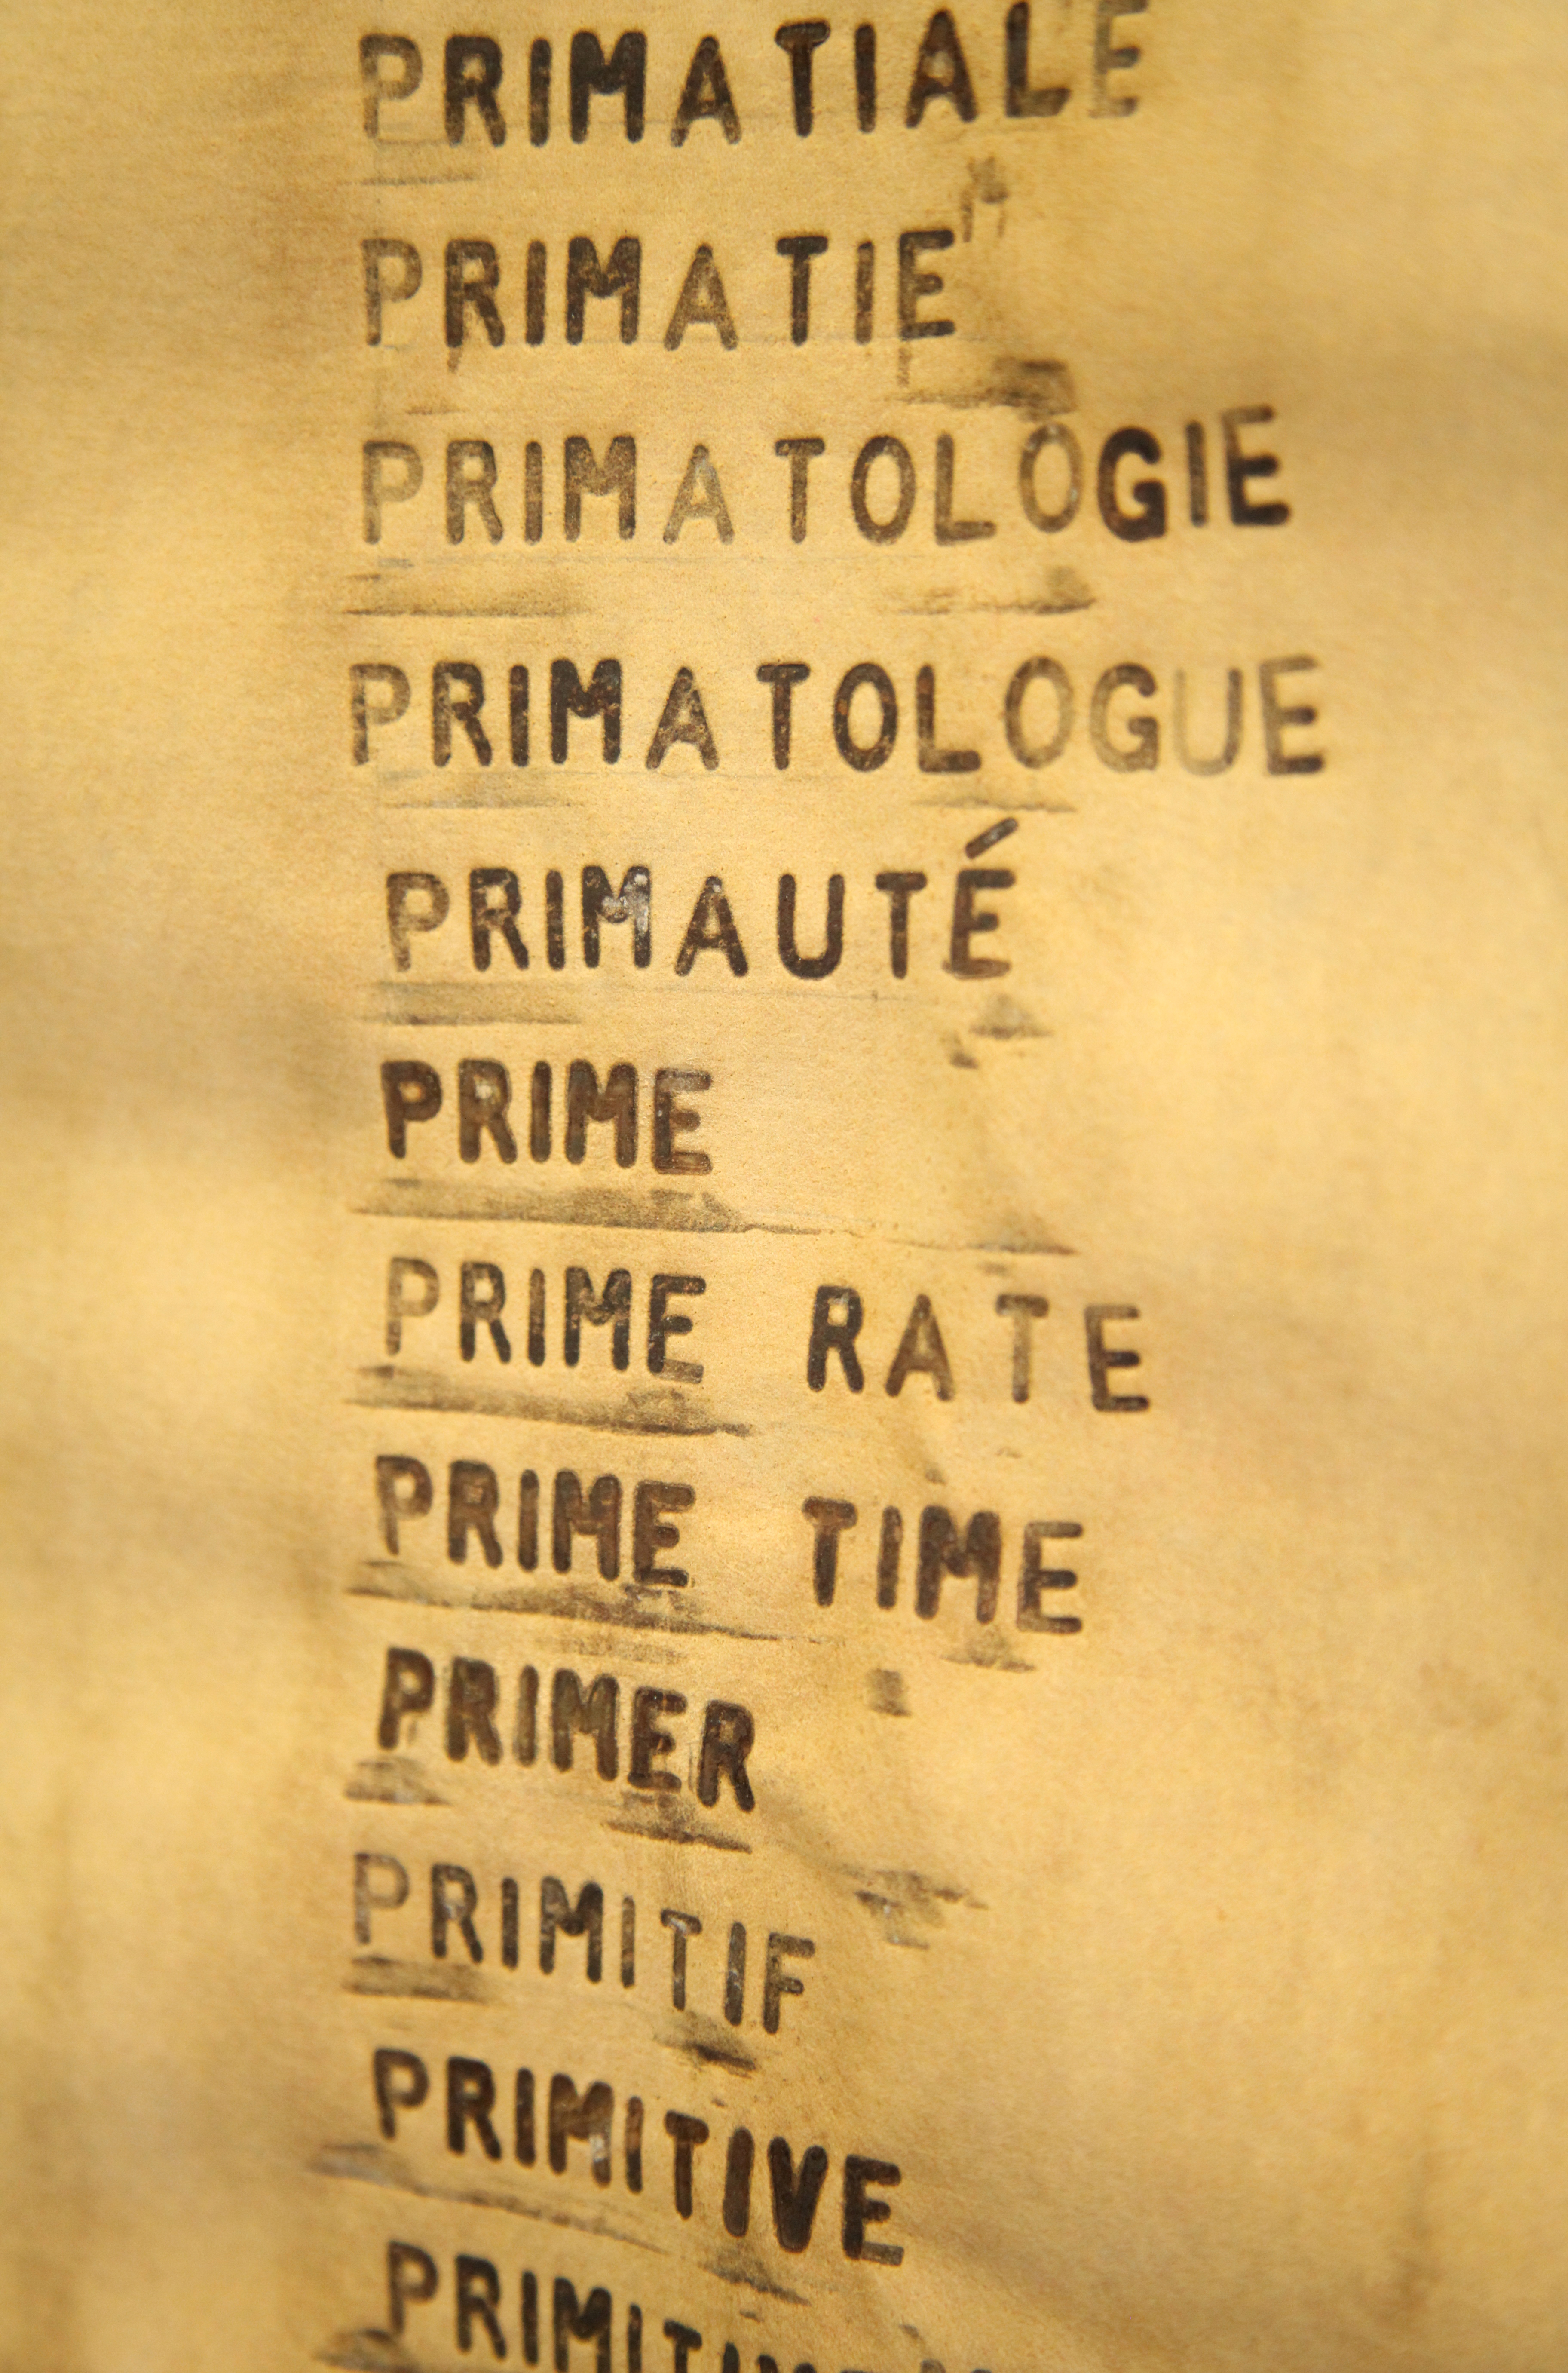 PRIMATIALE
PRIMATIE
PRIMATOLOGIE
PRIMATOLOGUE
PRIMAUTÉ
PRIME
PRIME RATE
PRIME TIME
PRIMER
PRIMITIF
PRIMITIVE